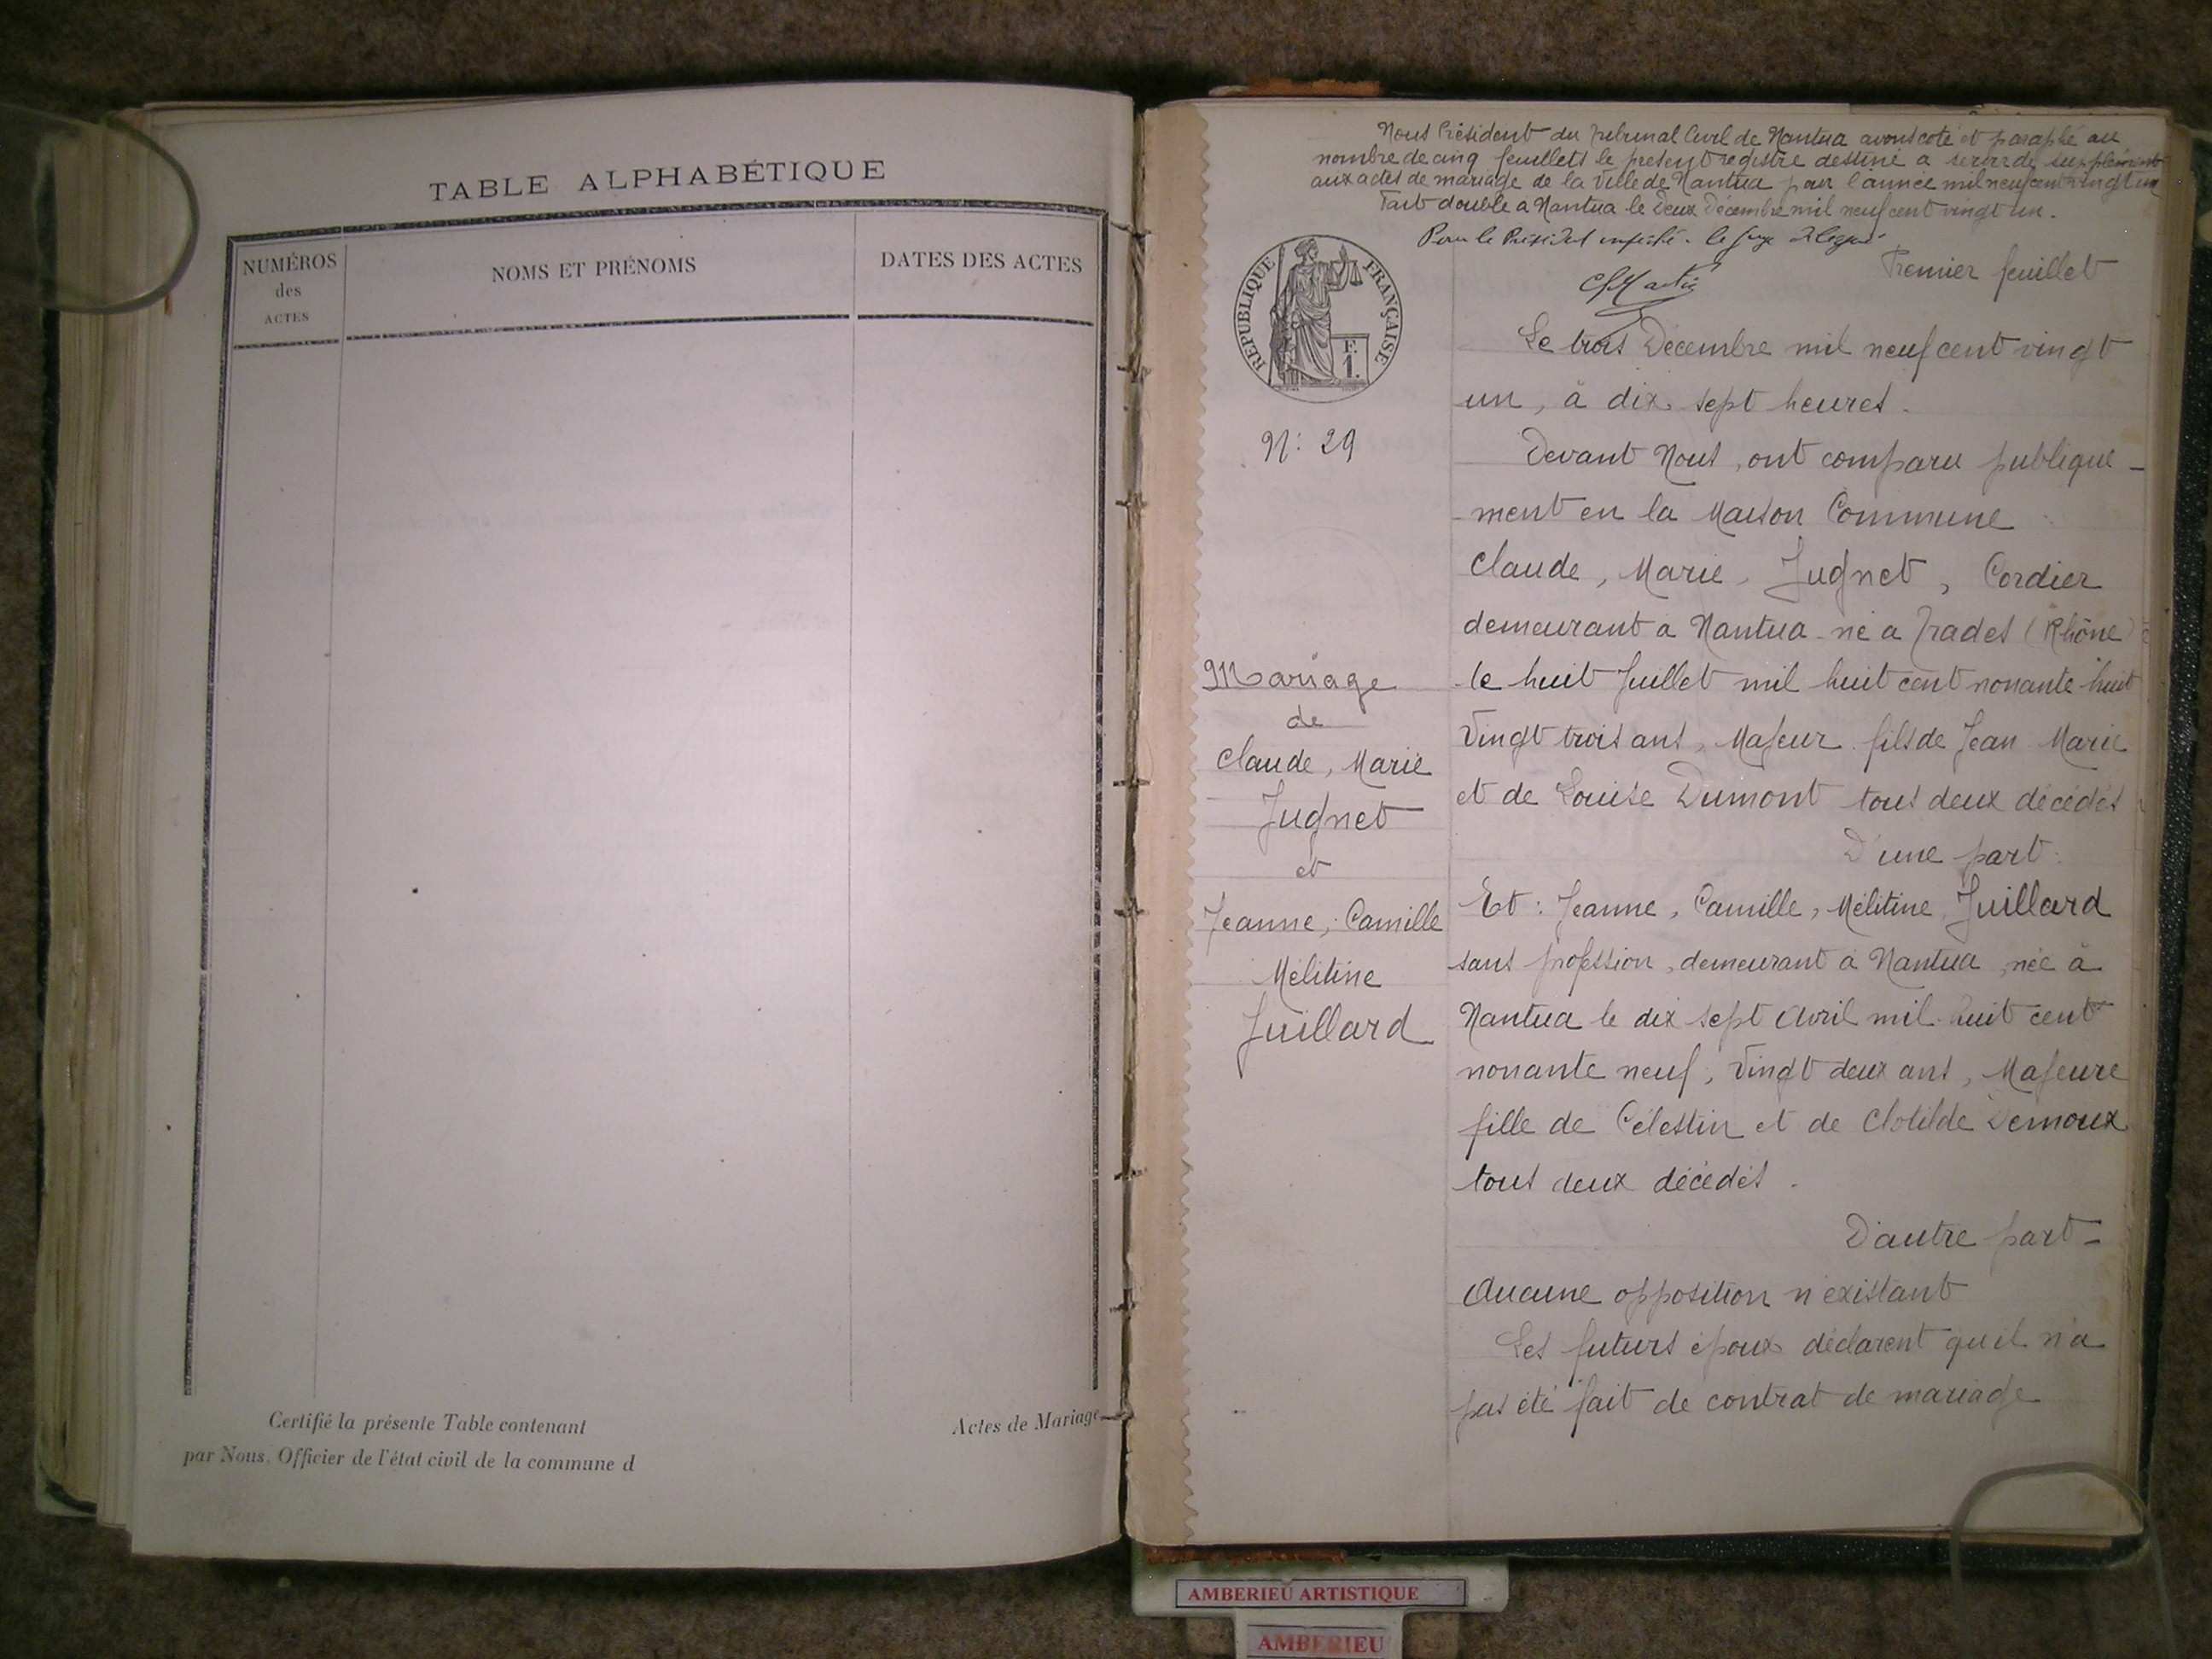 TABLE ALPHABÉTIQUE
NUMÉROS
des
ACTES
NOMS ET PRÉNOMS
DATES DES ACTES
Certifié la présente Table contenant
Actes de Mariage
par Nous, Officier de l'état civil de la commune d
Nous Président du Tribunal Civil de Nantua avons coté et paraphé au
nombre de cinq feuillets le présent registre destiné a servir de supplément
aux actes de mariage de la Ville de Nantua pour l'année mil neuf cent vingt un
Fait double a Nantua le deux Décembre mil neuf cent vingt un.
Pour le Président empêché. le Juge délégué
Premier feuillet
RÉPUBLIQUE FRANÇAISE
F.
1.
N: 29
Mariage
de
Claude, Marie
Jugnet
et
Jeanne, Camille
Mélitine
Juillard
Le trois Décembre mil neuf cent vingt
un, à dix sept heures.
Devant Nous, ont comparu publique-
ment en la Maison Commune
Claude, Marie, Jugnet, Cordier
demeurant a Nantua né a Trades (Rhône)
le huit Juillet mil huit cent nonante huit
Vingt trois ans, Majeur fils de Jean Marie
et de Louise Dumont tous deux décédés
D'une part.
Et: Jeanne, Camille, Mélitine, Juillard
sans profession, demeurant à Nantua, née à
Nantua le dix sept Avril mil huit cent
nonante neuf, Vingt deux ans, Majeure
fille de Célestin et de Clotilde Demoux
tous deux décédés.
D'autre part-
Aucune opposition n'existant
Les futurs époux déclarent qu'il n'a
pas été fait de contrat de mariage
AMBERIEU ARTISTIQUE
AMBERIEU